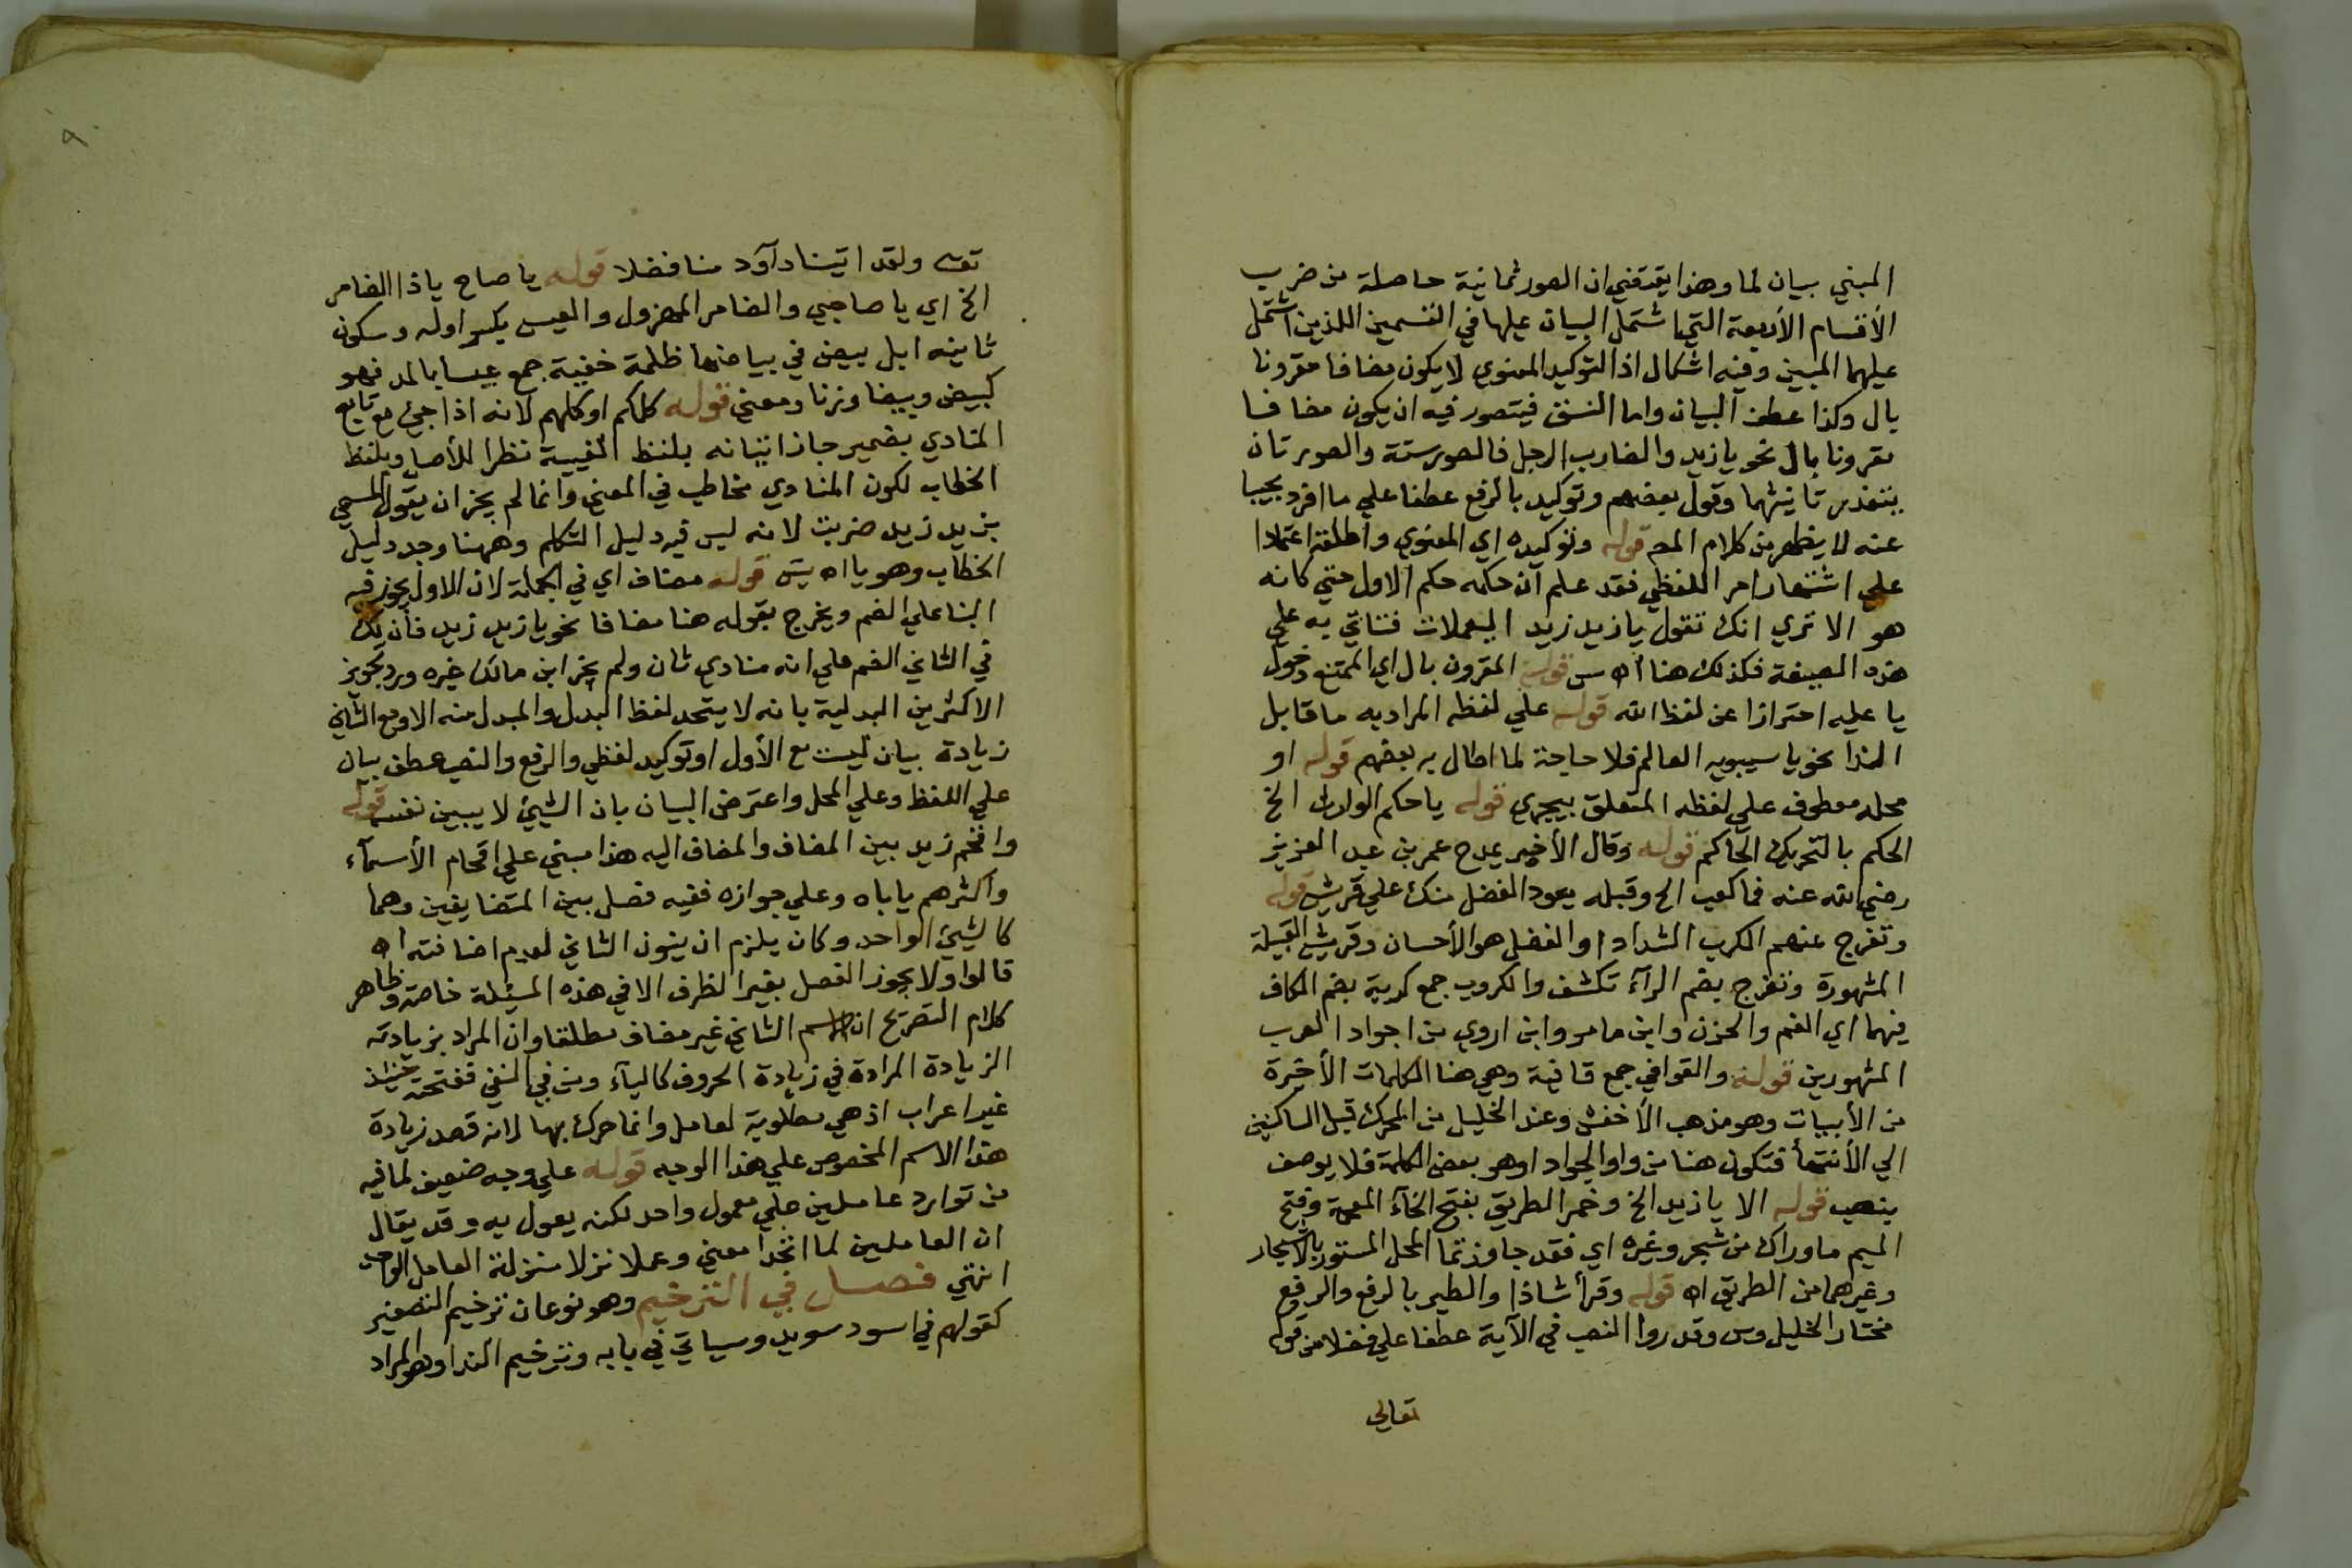 المبني بيان لما وهذا يقتضي ان الصور ثمانية حاصلة من ضرب
الأقسام الأربعة التي اشتمل البيان عليها في القسمين اللذين اشتمل
عليهما المبين وفيه اشكال اذ التوكيد المعنوي لا يكون مضافا مقرونا
بال وكذا عطف البيان واما النسق فيتصور فيه ان يكون مضافا
مقرونا بال نحو يا زيد والضارب الرجل فالصور ستة والصورتان
بتعذر تأنيثهما وقول بعضهم وتوكيد بالرفع عطفا علي ما افرد
عنه لا يظهر من كلام المص قوله وتوكيده اي المعنوي واطلقه اعتمادا
علي اشتهار امر اللفظي فقد علم أن حكمه حكم الاول حتي كانه
هو الا تري انك تقول يا زيد زيد اليعملات فتاتي به علي
هذه الصيغة فكذلك هنا اه س قوله المقرون بال اي الممتنع دخول
يا عليه احترازا عن لفظ الله قوله علي لفظه المراد به ما قابل
المندا نحو يا سيبويه العالم فلا حاجة لما اطال به بعضهم قوله او
محله معطوف علي لفظه المتعلق بيجري قوله يا حكم الوارث الخ
الحكم بالتحريك الحاكم قوله وقال الأخير يمدح عمر بن عبد العزيز
رضي الله عنه فما كعب الخ وقبله يعود الفضل منك علي قريش قوله
وتفرج عنهم الكرب الشدادا والفضل هو الأحسان وقريش القبيلة
المشهورة وتفرج بضم الرآء تكشف والكروب جمع كربة بضم الكاف
فيهما اي الغم والحزن وابن مامر وابن اروي من اجواد العرب
المشهورين قوله والقوافي جمع قافية وهي هنا الكلمات الأخيرة
من الأبيات وهو مذهب الأخفش وعند الخليل من المحرك قبل الساكنين
الي الأنتهأ فتكون هنا من واو الجوادا وهو بعض الكلمة فلا يوصف
بنصب قوله الا يا زيد الخ وخمر الطريق بفتح الخآء المعجمة وفتح
الميم ما وراك من شجر وغيره اي فقد جاوزتما المحل المستور بالأشجار
وغيرهما من الطريق اه قوله وقرأ شاذا والطير بالرفع والرفع
مختار الخليل وس وقدروا النصب في الآية عطفا علي فضلا من قوله
تعالي
تعالى ولقد اتينا دآود منا فضلا قوله يا صاح يا ذا الضامر
الخ اي يا صاحبي والضامر المهزول والعيس بكسر اوله وسكون
ثانيه ابل بيض في بياضها ظلمة خفية جمع عيسا بالمد فهو
كبيض وبيضا وزنا ومعني قوله كلكم او كلهم لانه اذا جئ مع تابع
المنادي بضمير جاز اتيانه بلفظ الغيبة نظرا للأصل وبلفظ
الخطاب لكون المنادي مخاطب في المعني وانما لم يجز ان يقول المسمي
بزيد زيد ضربت لانه ليس فيه دليل التكلم وههنا وجد دليل
الخطاب وهو يا اه يس قوله مضاف اي في الجملة لان الاول يجوز فيه
البنا علي الضم ويخرج بقوله هنا مضافا نحو يا زيد زيد فأن لك
في الثاني الضم علي انه منادي ثان ولم يجز ابن مالك غيره ورد تجويز
الاكثرين البدلية بانه لا يتحد لفظ البدل والمبدل منه الا ومع الثاني
زيادة بيان ليست مع الأول او توكيد لفظي والرفع والنصب عطف بيان
علي اللفظ وعلي المحل واعترض البيان بان الشيئ لا يبين نفسه قوله
واقحم زيد بين المضاف والمضاف اليه هذا مبني علي اقحام الأسمآء
واكثرهم ياباه وعلي جوازه ففيه فصل بين المتضايفين وهما
كالشيئ الواحد وكان يلزم ان ينون الثاني لعدم اضافته اه
قالوا ولا يجوز الفصل بغير الظرف الا في هذه المسئلة خاصة وظاهر
كلام التصريح ان الاسم الثاني غير مضاف مطلقا وان المراد بزيادته
الزيادة المرادة في زيادة الحروف كاليآء ومن في النفي ففتحته حينئذ
غير اعراب اذ هي مطلوبة لعامل وانما حرك بها لانه قصد زيادة
هذا الاسم المخصوص علي هذا الوجه قوله علي وجه ضعيف لما فيه
من توارد عاملين علي معمول واحد لكنه يعول به وقد يقال
ان العاملين لما اتحدا معني وعملا نزلا منزلة العامل الواحد
انتهي فصل في الترخيم وهو نوعان ترخيم التصغير
كقولهم في اسود سويد وسياتي في بابه وترخيم الندا وهو المراد